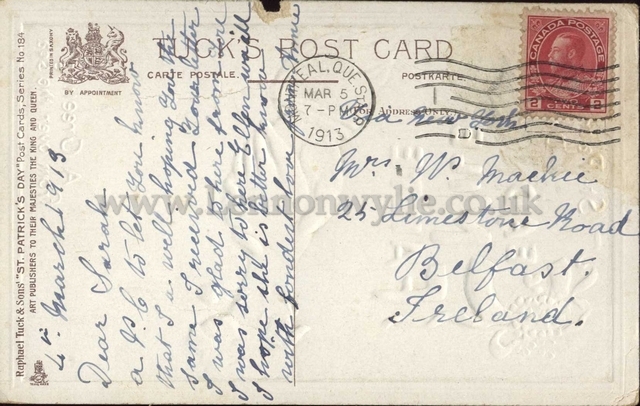 Raphael Tuck & Sons' "ST. PATRICK'S DAY" Post Cards, Series No. 184
ART PUBLISHERS TO THEIR MAJESTIES THE KING AND QUEEN.
PRINTED IN SAXONY
BY APPOINTMENT
TUCK'S POST CARD
CARTE POSTALE.
POSTKARTE.
For Address Only.
MONTREAL, QUE
MAR 5
7-PM
1913
CANADA POSTAGE
2 CENTS 2
4th March 1913
Dear Sarah
a P.C to let you know
that I a well hoping you the
same I received your letter
I was glad to hear from
I was sorry to hear Ellen was ill
I hope she is better know
with fondest love from
via New York
Mrs. W Mackie
25 Limestone Road
Belfast.
Ireland.